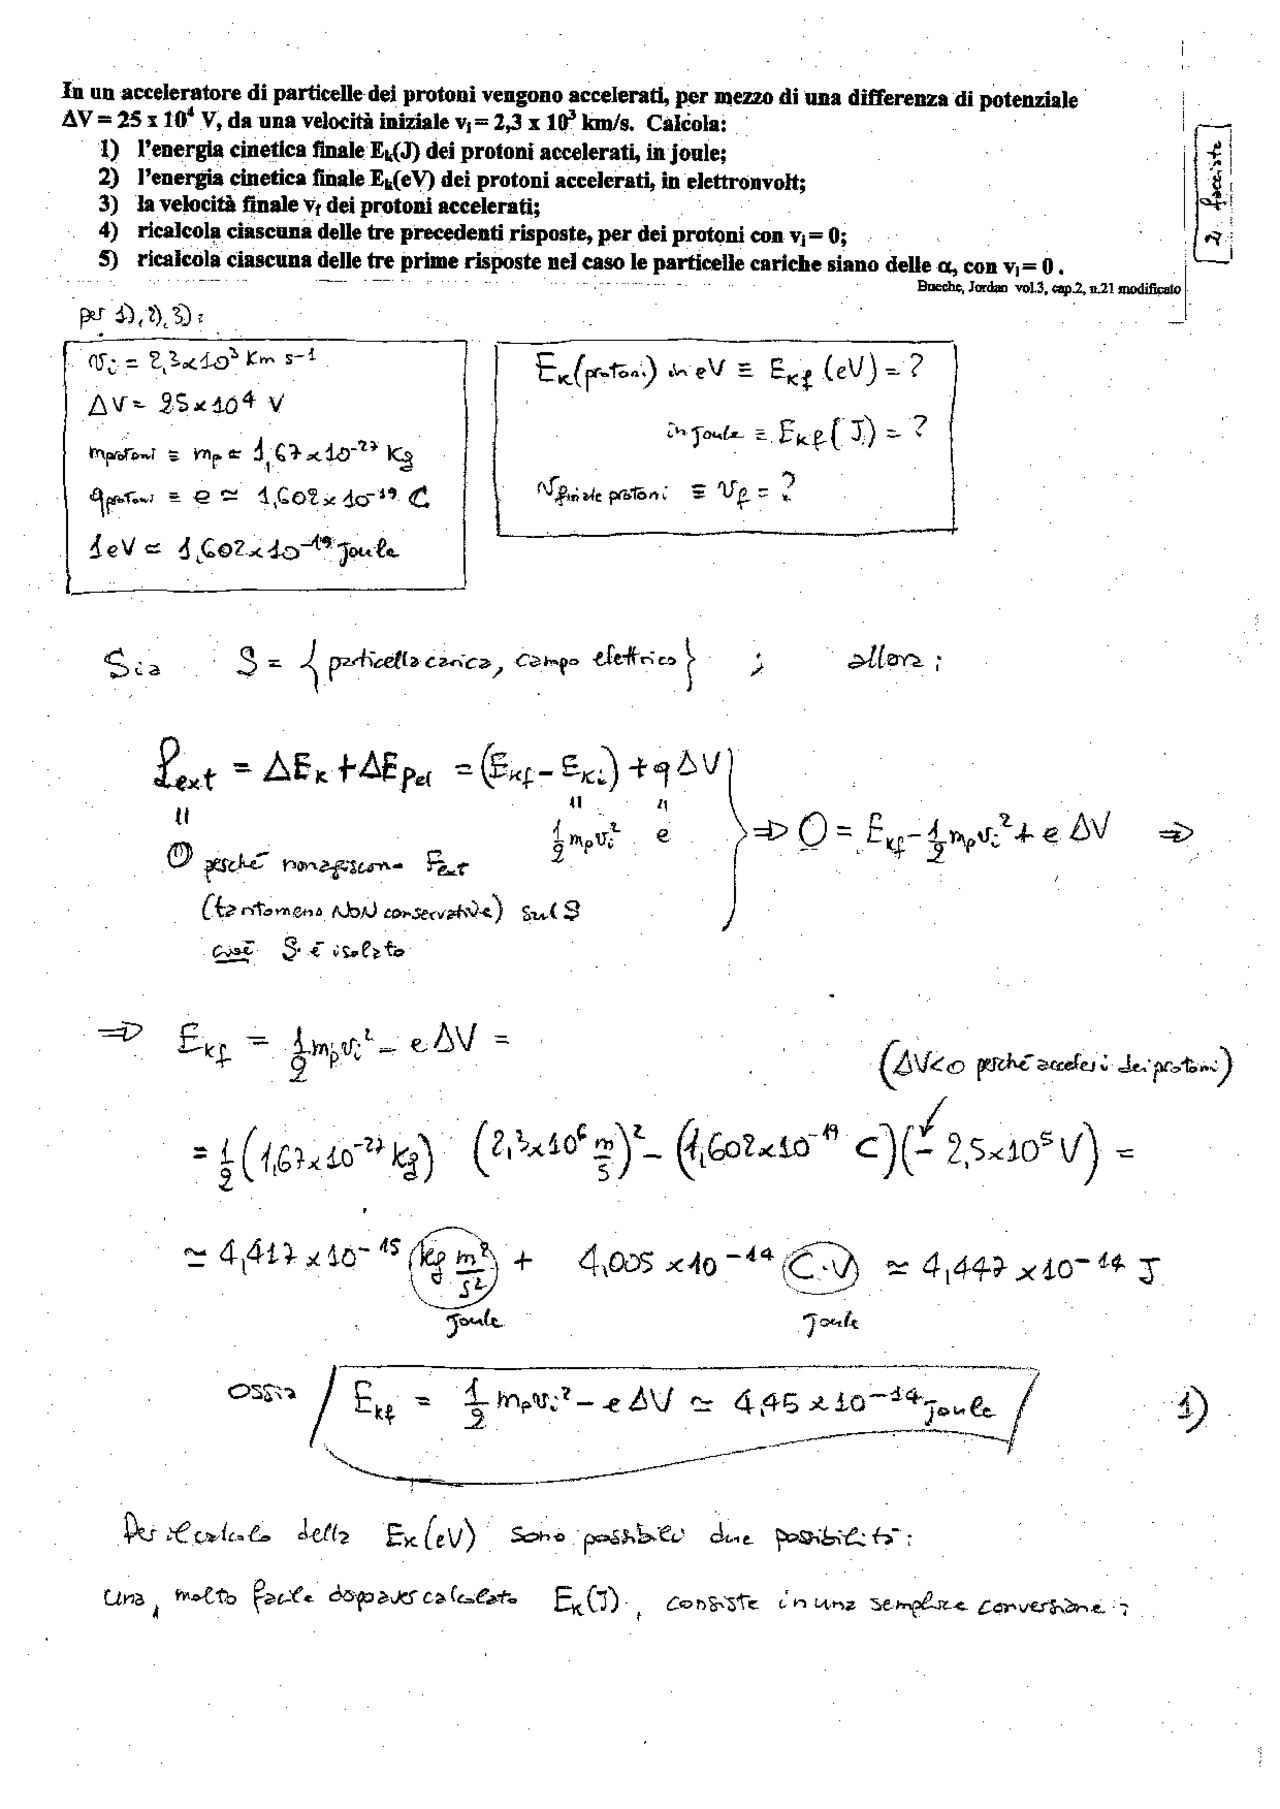 In un acceleratore di particelle dei protoni vengono accelerati, per mezzo di una differenza di potenziale
ΔV = 25 x 10⁴ V, da una velocità iniziale vᵢ = 2,3 x 10³ km/s. Calcola:
1) l'energia cinetica finale Eₖ(J) dei protoni accelerati, in joule;
2) l'energia cinetica finale Eₖ(eV) dei protoni accelerati, in elettronvolt;
3) la velocità finale v_f dei protoni accelerati;
4) ricalcola ciascuna delle tre precedenti risposte, per dei protoni con vᵢ = 0;
5) ricalcola ciascuna delle tre prime risposte nel caso le particelle cariche siano delle α, con vᵢ = 0 .
Bueche, Jordan vol.3, cap.2, n.21 modificato
2 facciate
per 1), 2), 3):
vᵢ = 2,3x10³ Km s⁻¹
ΔV = 25x10⁴ V
m protoni ≡ mₚ ≃ 1,67x10⁻²⁷ Kg
q protoni ≡ e ≃ 1,602x10⁻¹⁹ C
1eV ≃ 1,602x10⁻¹⁹ joule
Eₖ(protoni) in eV ≡ E_Kf (eV) = ?
in joule ≡ E_Kf (J) = ?
v finale protoni ≡ v_f = ?
Sia S = {particella carica, campo elettrico} ; allora:
L_ext = ΔEₖ + ΔE_pel = (E_Kf - E_Ki) + qΔV
= = =
0 perché non agiscono F_ext ½mₚvᵢ² e ⇒ 0 = E_Kf - ½mₚvᵢ² + eΔV ⇒
(tantomeno NON conservative) sul S
cioè S è isolato
⇒ E_Kf = ½mₚvᵢ² - eΔV =
(ΔV<0 perché acceleri dei protoni)
= ½ (1,67x10⁻²⁷ Kg) (2,3x10⁶ m/s)² - (1,602x10⁻¹⁹ C)(- 2,5x10⁵ V) =
≃ 4,417x10⁻¹⁵ (kg m²/s²) + 4,005x10⁻¹⁴ (C·V) ≃ 4,447x10⁻¹⁴ J
joule joule
ossia E_Kf = ½mₚvᵢ² - eΔV ≃ 4,45x10⁻¹⁴ joule 1)
Per il calcolo della Eₖ(eV) sono possibili due possibilità:
una, molto facile dopo aver calcolato Eₖ(J), consiste in una semplice conversione: